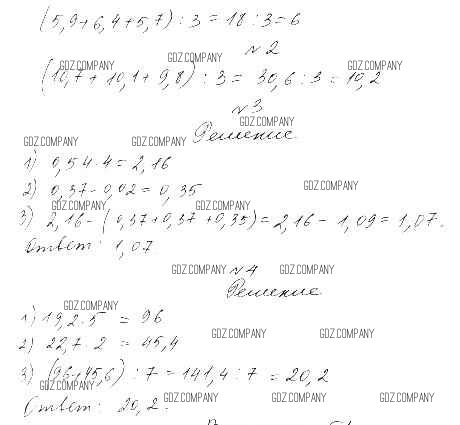 (5,9+6,4+5,7) : 3 = 18 : 3 = 6
№2
GDZ.COMPANY GDZ.COMPANY GDZ.COMPANY
(10,7 + 10,1 + 9,8) : 3 = 30,6 : 3 = 10,2
№3
GDZ.COMPANY
Решение
GDZ.COMPANY GDZ.COMPANY
1) 0,54 · 4 = 2,16
2) 0,37 - 0,02 = 0,35 GDZ.COMPANY
GDZ.COMPANY GDZ.COMPANY
3) 2,16 - (0,37 + 0,37 + 0,35) = 2,16 - 1,09 = 1,07.
Ответ: 1,07
GDZ.COMPANY №4 GDZ.COMPANY
Решение
GDZ.COMPANY
1) 19,2 · 5 = 96
GDZ.COMPANY GDZ.COMPANY
2) 22,7 · 2 = 45,4
3) (96+45,6) : 7 = 141,4 : 7 = 20,2
GDZ.COMPANY
Ответ: 20,2. GDZ.COMPANY GDZ.COMPANY GDZ.COMPANY